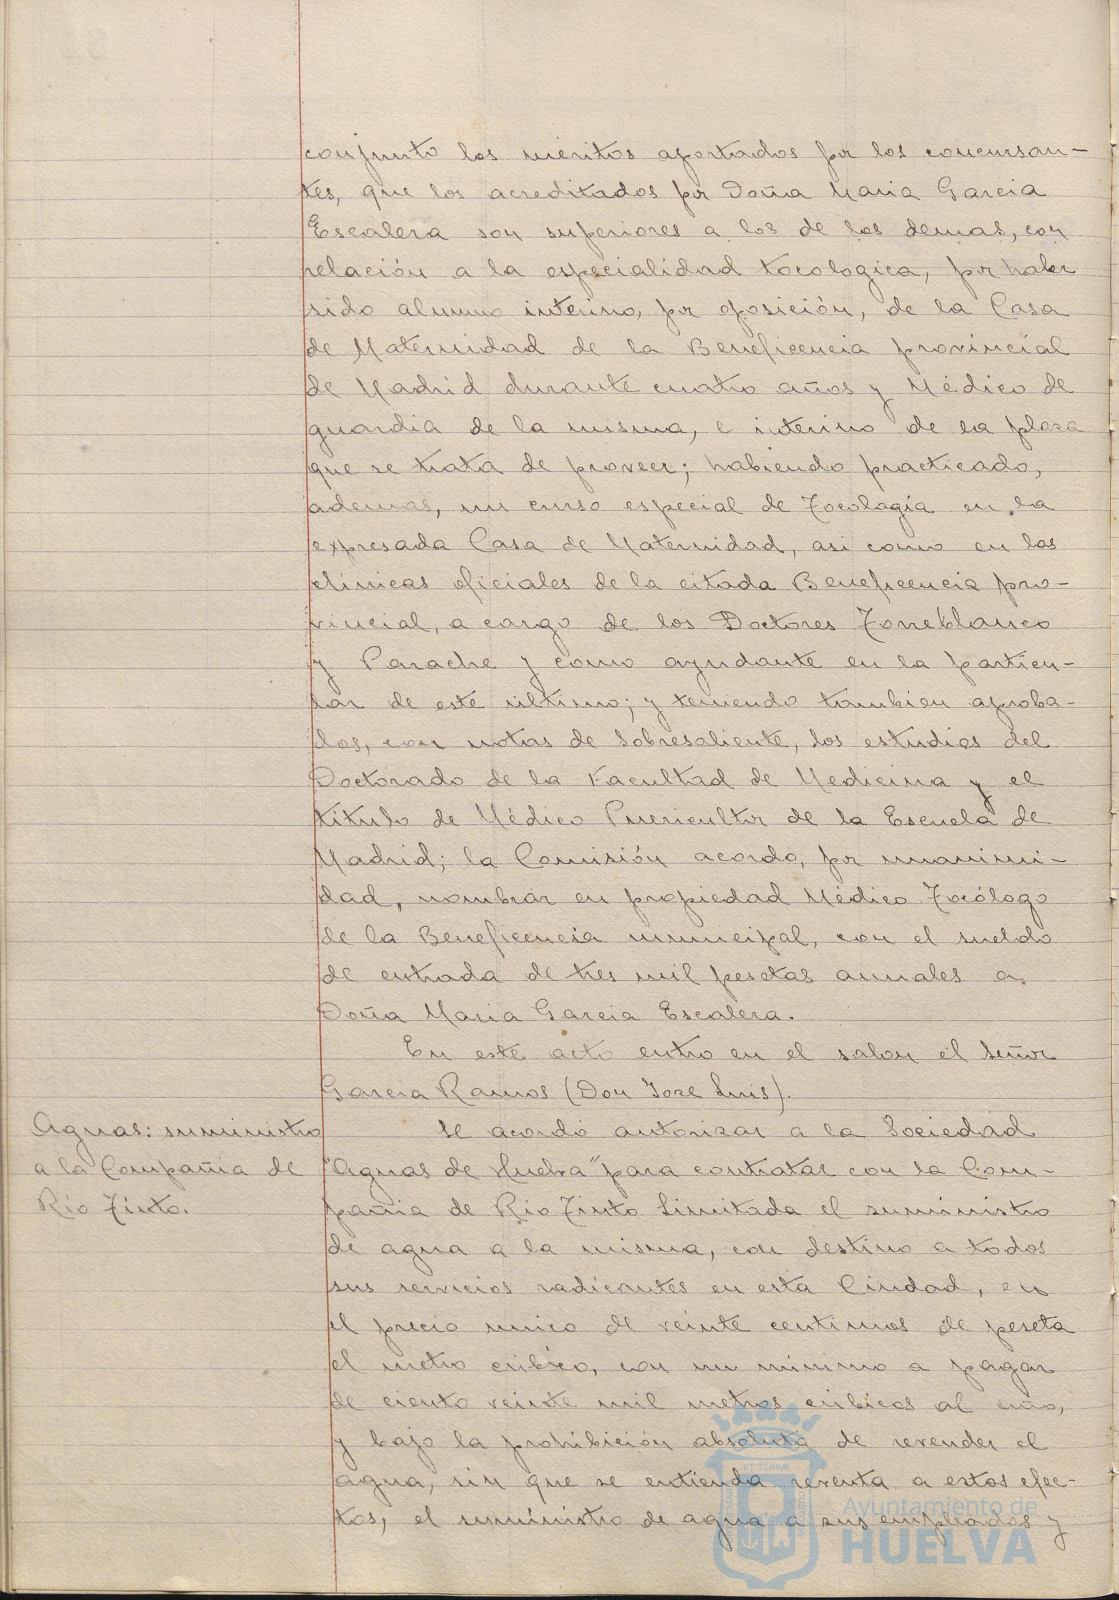 conjunto los méritos aportados por los concursan-
tes, que los acreditados por Doña Maria Garcia
Escalera son superiores a los de los demas, con
relación a la especialidad tocologica, por haber
sido alumno interino, por oposición, de la Casa
de Maternidad de la Beneficencia provincial
de Madrid durante cuatro años y Médico de
guardia de la misma, e interino de la plaza
que se trata de proveer; habiendo practicado,
ademas, un curso especial de Tocología en la
expresada Casa de Maternidad, asi como en las
clinicas oficiales de la citada Beneficencia pro-
vincial, a cargo de los Doctores Torreblanco
y Parache y como ayudante en la particu-
lar de este ultimo; y teniendo tambien aproba-
dos, con notas de Sobresaliente, los estudios del
Doctorado de la Facultad de Medicina y el
titulo de Médico Puericultor de la Escuela de
Madrid; la Comisión acordó, por unanimi-
dad, nombrar en propiedad Médico Tocólogo
de la Beneficencia municipal, con el sueldo
de entrada de tres mil pesetas anuales a
Doña Maria Garcia Escalera.
En este acto entro en el salon el Señor
Garcia Ramos (Don Jose Luis).
Aguas: suministro
a la Compañia de
Rio Tinto.
Se acordó autorizar a la Sociedad
"Aguas de Huelva" para contratar con la Com-
pañia de Rio Tinto Limitada el suministro
de agua a la misma, con destino a todos
sus servicios radicantes en esta Ciudad, en
el precio unico de veinte centimos de peseta
el metro cubico, con un minimo a pagar
de ciento veinte mil metros cubicos al año,
y bajo la prohibición absoluta de revender el
agua, sin que se entienda reventa a estos efec-
tos, el suministro de agua a sus empleados y
Ayuntamiento de
HUELVA